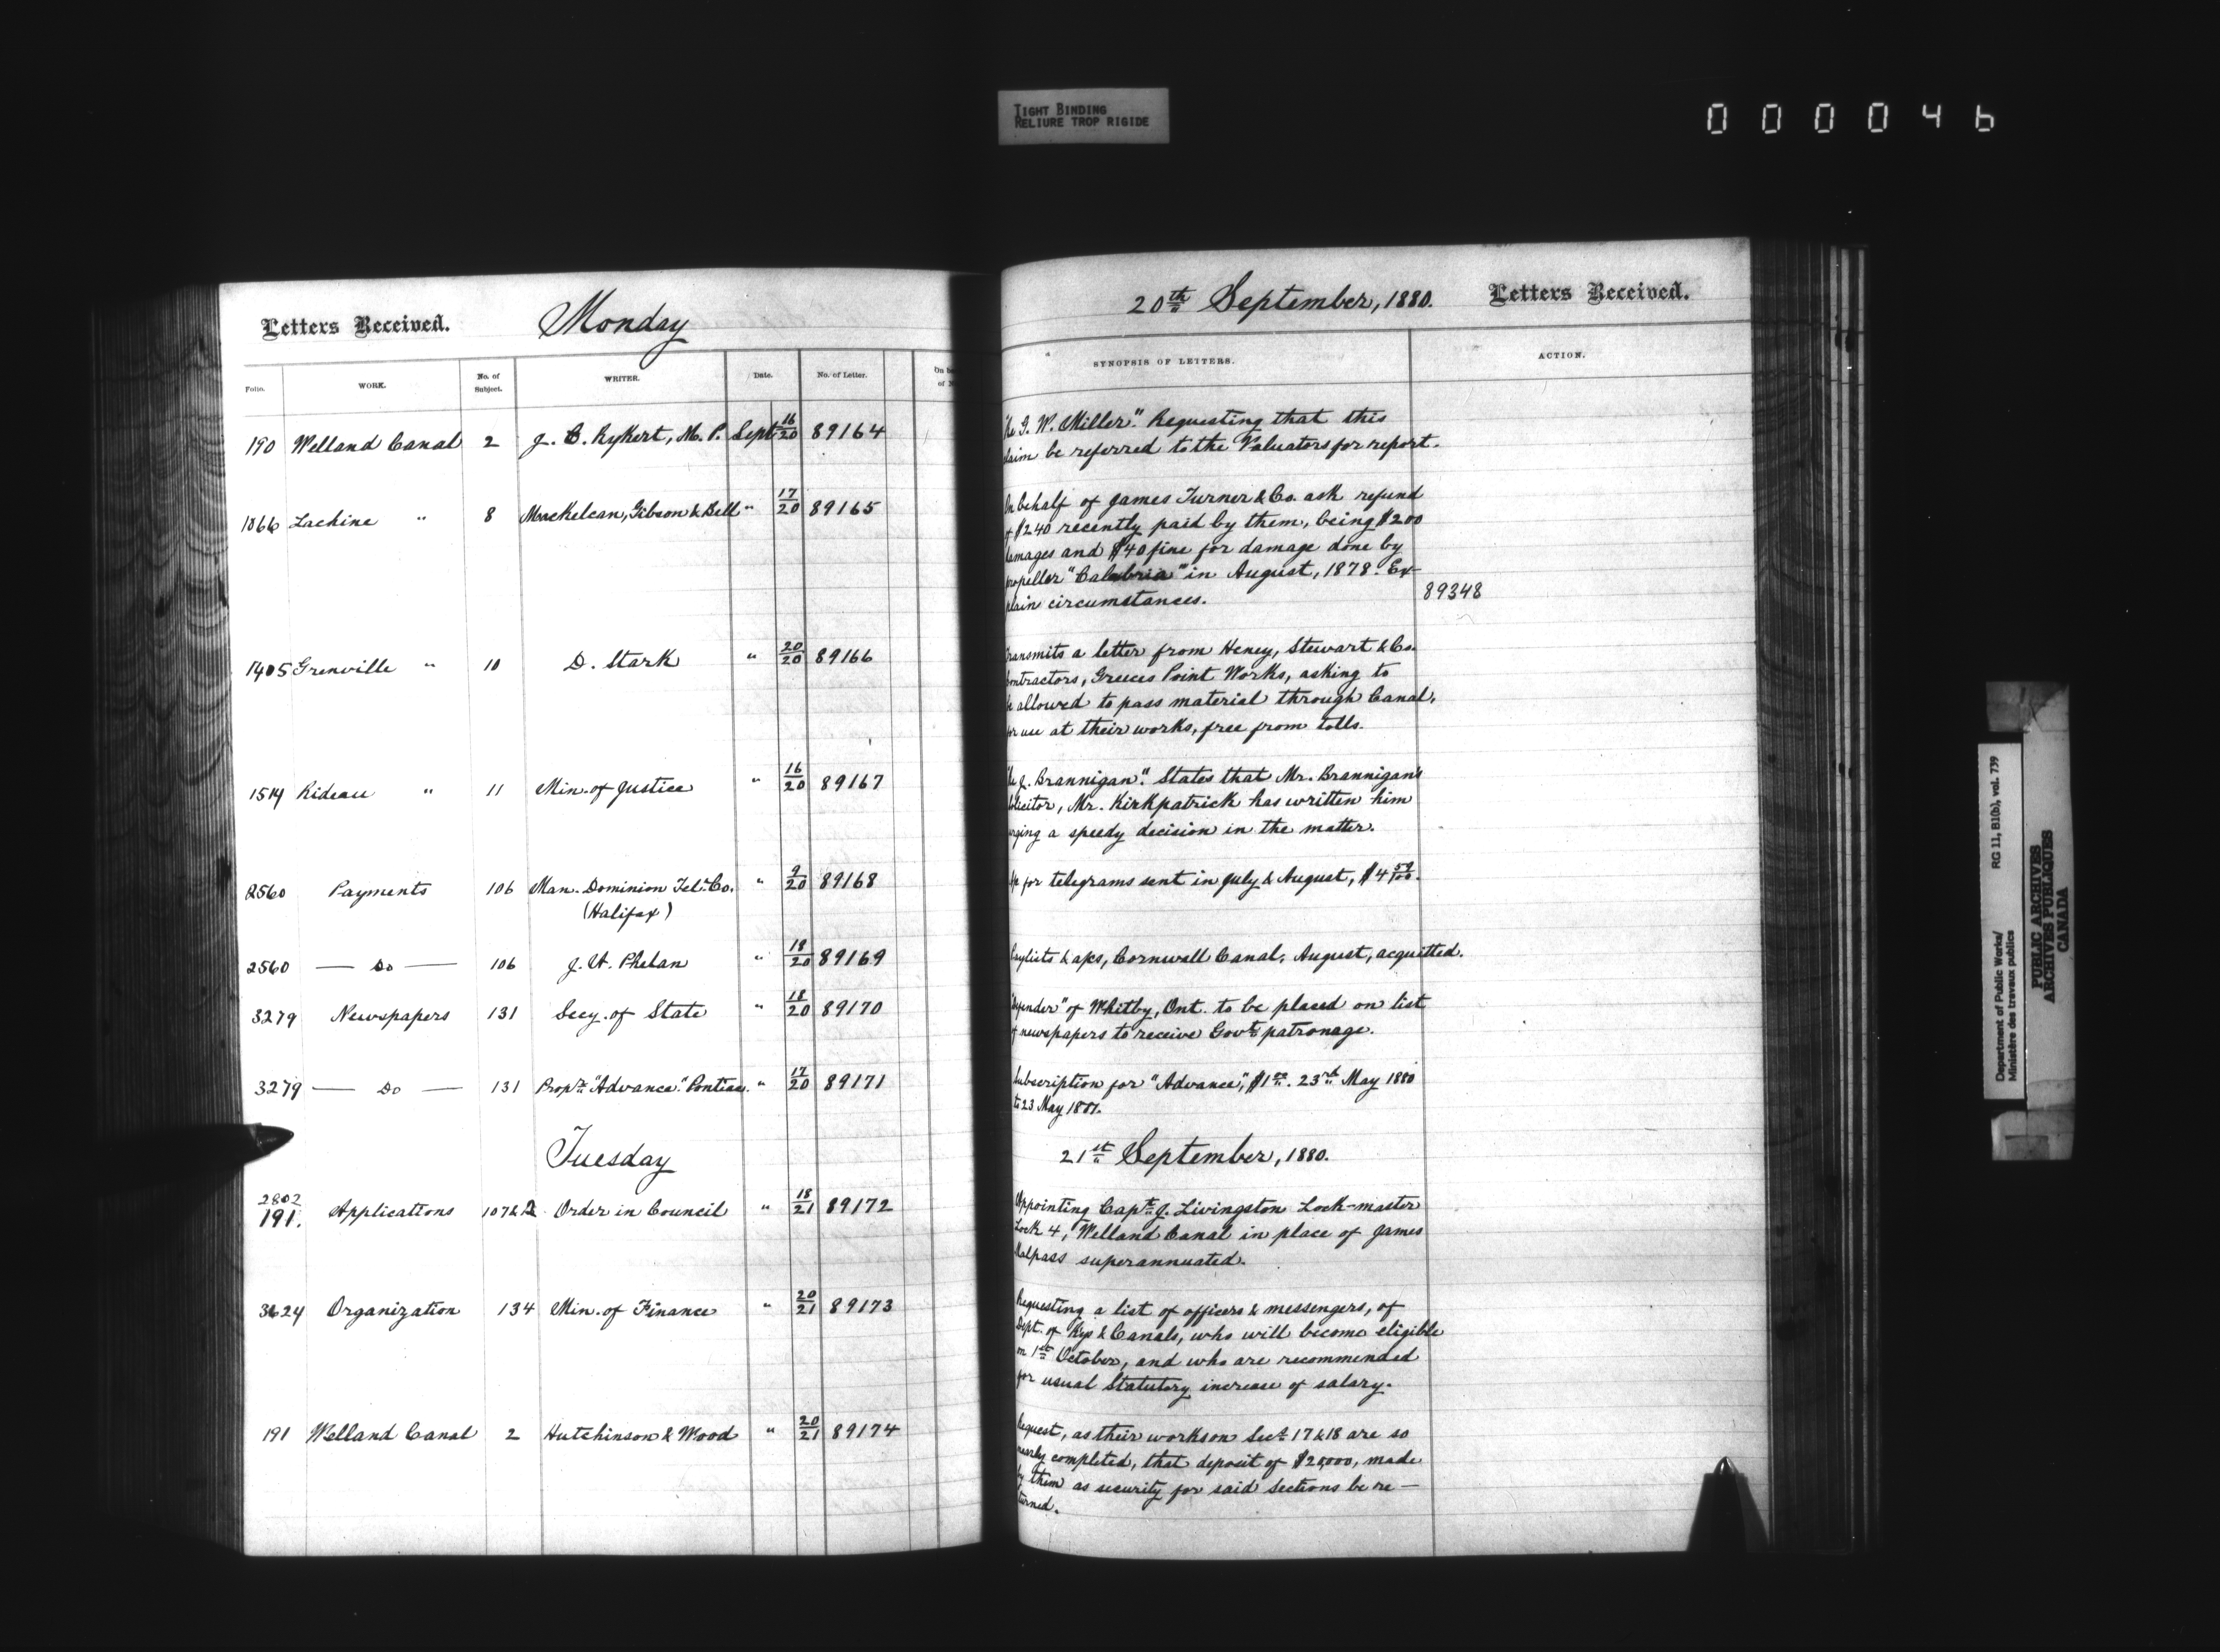 TIGHT BINDING
RELIURE TROP RIGIDE
000046
Letters Received. Monday
Folio. WORK. No. of Subject. WRITER. Date. No. of Letter.
190 Welland Canal 2 J. C. Rykert, M. P. Sept 16/20 89164
1866 Lachine " 8 Mackelcan, Gibson & Bell " 17/20 89165
1405 Grenville " 10 D. Stark " 20/20 89166
1514 Rideau " 11 Min. of Justice " 16/20 89167
2560 Payments 106 Man. Dominion Tel. Co. " 9/20 89168
(Halifax)
2560 — Do — 106 J. H. Phelan " 18/20 89169
3279 Newspapers 131 Secy. of State " 18/20 89170
3279 — Do — 131 Propr. "Advance". Pontiac. " 17/20 89171
Tuesday
2802
191. Applications 107&2 Order in Council " 18/21 89172
3624 Organization 134 Min. of Finance " 20/21 89173
191 Welland Canal 2 Hutchinson & Wood " 20/21 89174
20th September, 1880. Letters Received.
SYNOPSIS OF LETTERS. ACTION.
G. W. Miller". Requesting that this
be referred to the Valuators for report.
behalf of James Turner & Co. ask refund
$240 recently paid by them, being $200
and $40 fine for damage done by
"Calabria" in August, 1878. Ex-
plain circumstances. 89348
a letter from Heney, Stewart & Co.
Greeces Point Works, asking to
allowed to pass material through Canal,
use at their works, free from tolls.
J. Brannigan". States that Mr. Brannigan's
Mr. Kirkpatrick has written him
a speedy decision in the matter.
for telegrams sent in July & August, $4 59/100.
& a/cs, Cornwall Canal, August, acquitted.
of Whitby, Ont. to be placed on list
newspapers to receive Govt. patronage.
Subscription for "Advance", $1.00. 23rd May 1880
to 23 May 1881.
21st September, 1880.
Appointing Capt. J. Livingston Lock-master
Lock 4, Welland Canal in place of James
Malpass superannuated.
Requesting a list of officers & messengers, of
Dept. of Rys & Canals, who will become eligible
on 1st October, and who are recommended
for usual Statutory increase of salary.
Request, as their works on Sect. 17 & 18 are so
nearly completed, that deposit of $20,000, made
by them as security for said Sections be re-
turned.
Department of Public Works/ RG 11, B10(b), vol. 739
Ministère des travaux publics
PUBLIC ARCHIVES
ARCHIVES PUBLIQUES
CANADA